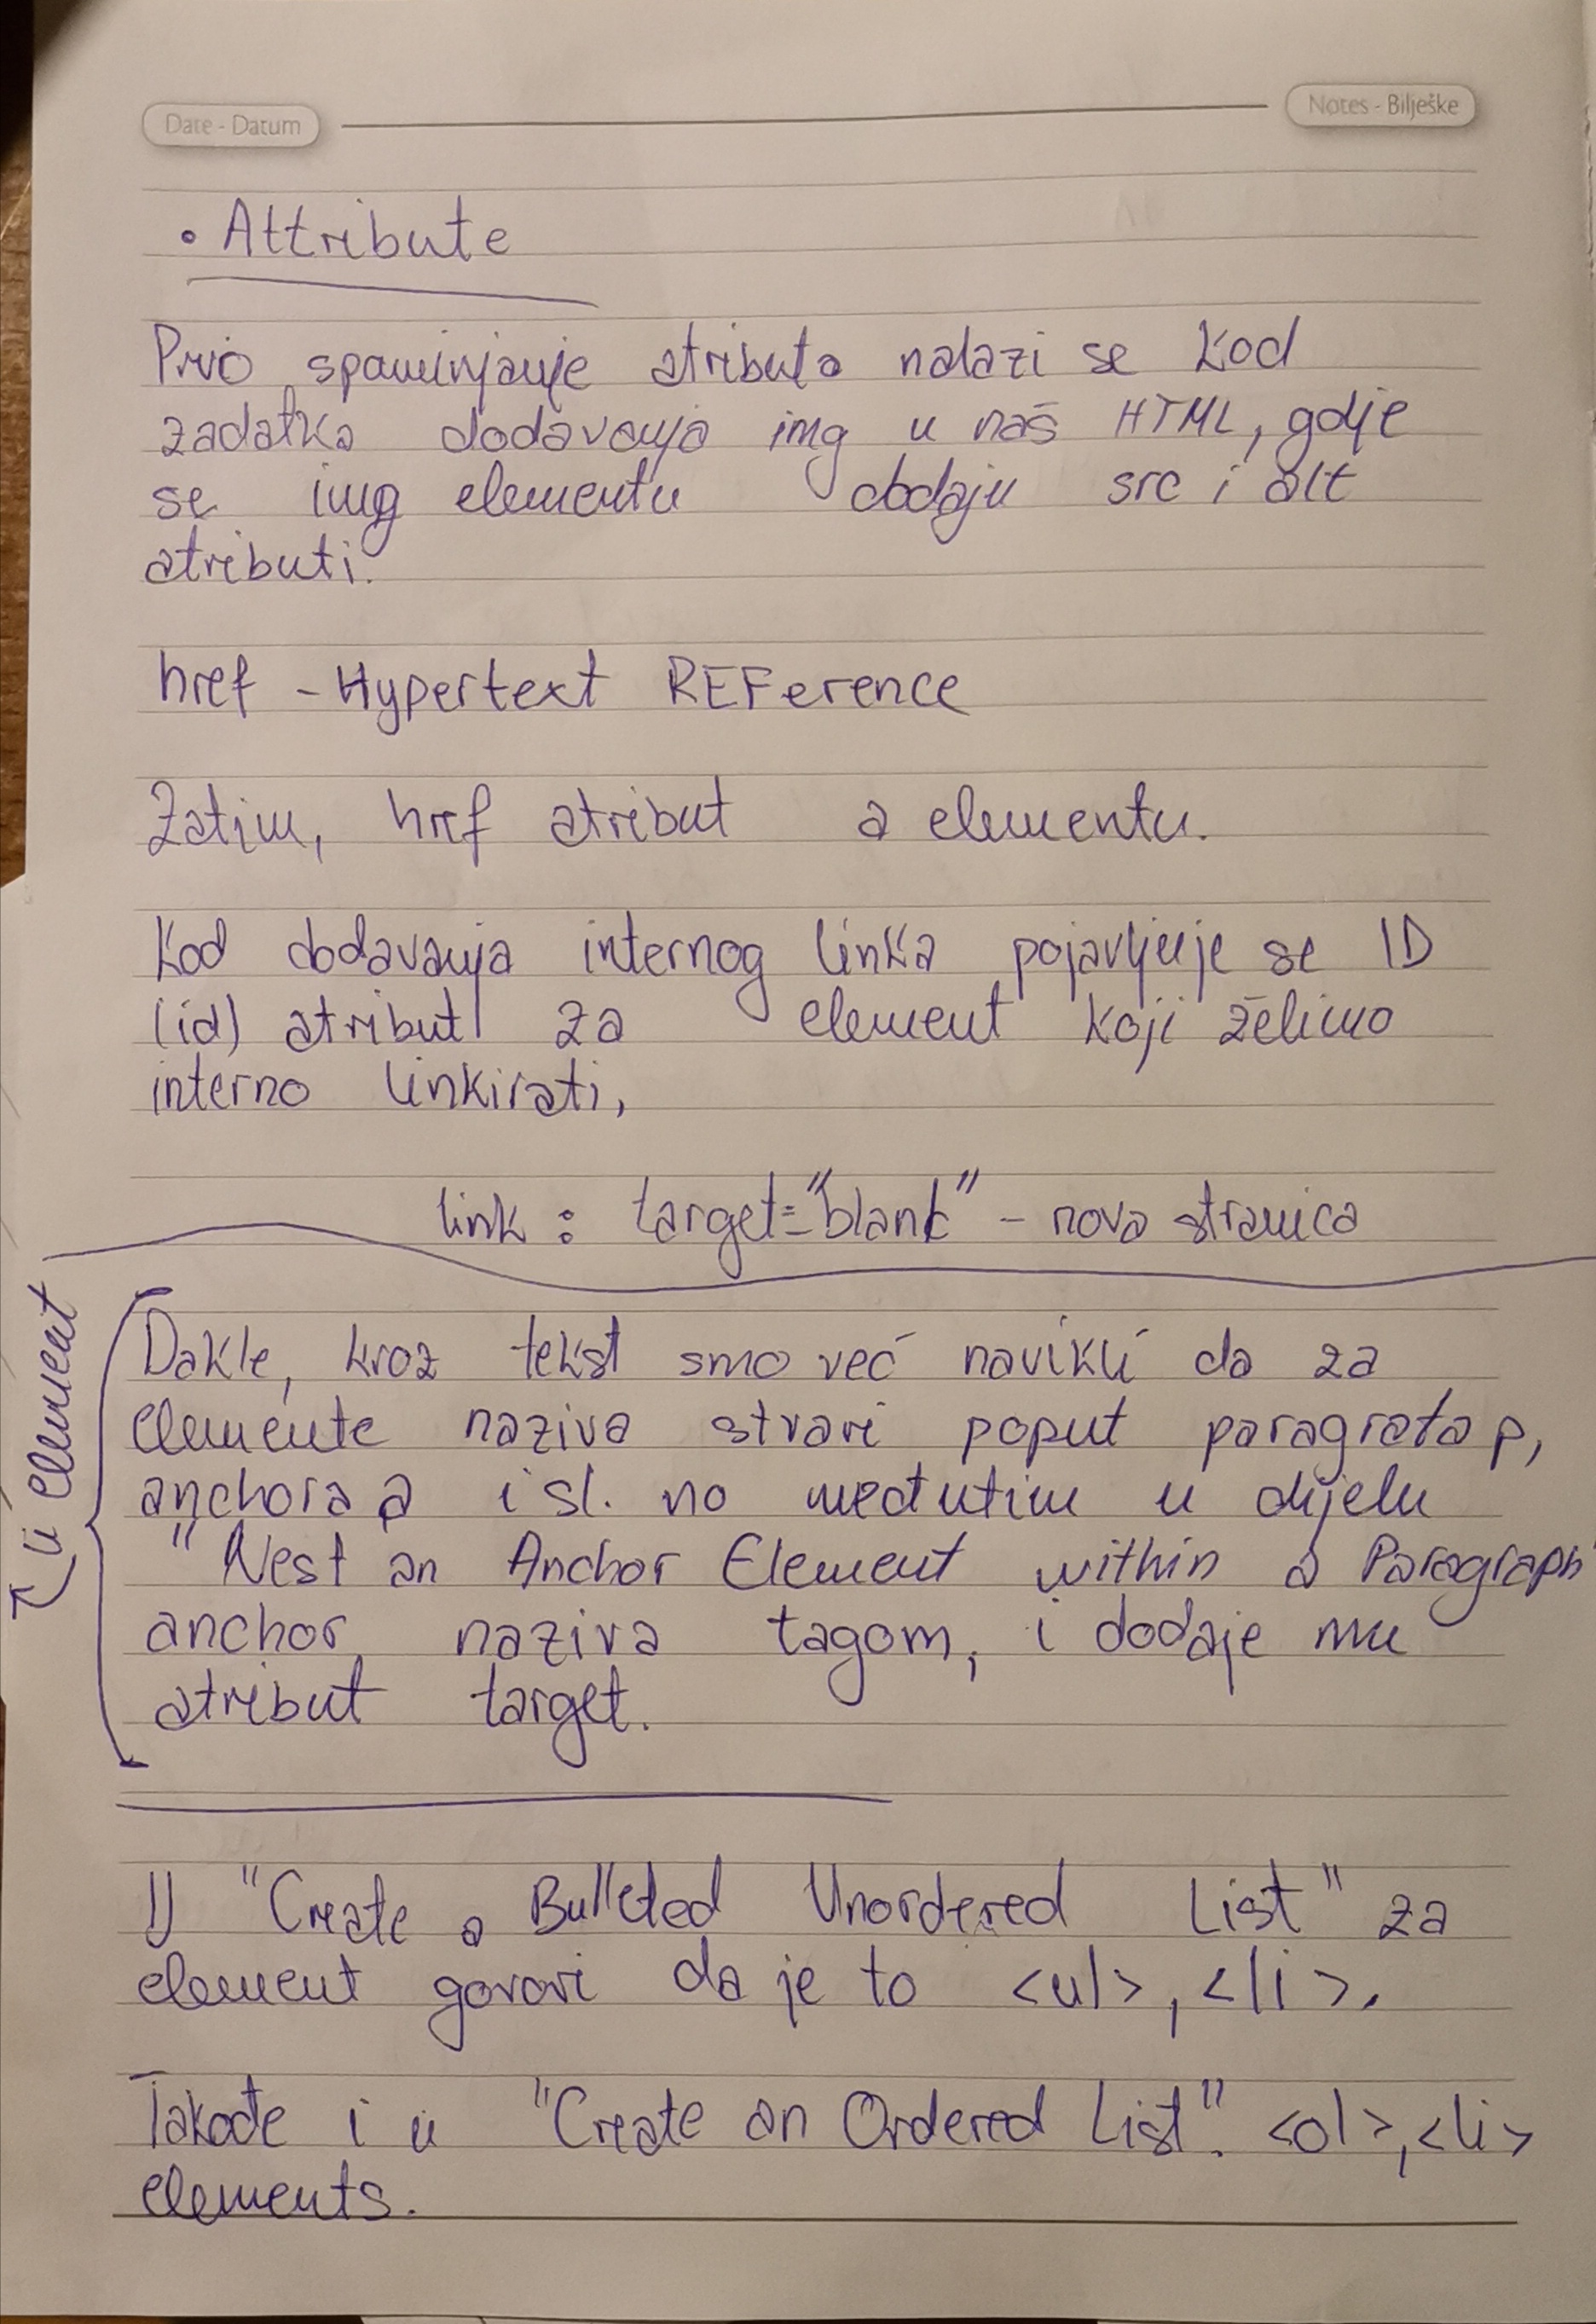 Date - Datum
Notes - Bilješke
• Attribute
Prvo spominjanje atributa nalazi se kod
zadatka dodavanja img u naš HTML, gdje
se img elementu dodaju src i alt
atributi.
href - Hypertext REFerence
Zatim, href atribut a elementu.
Kod dodavanja internog linka pojavljuje se ID
(id) atribut za element koji želimo
interno linkirati,
link : target="blank" - nova stranica
u element
Dakle, kroz tekst smo već navikli da za
elemente naziva stvari poput paragrafa p,
anchora a i sl. no međutim u dijelu
"Nest an Anchor Element within a Paragraph"
anchor naziva tagom, i dodaje mu
atribut target.
U "Create a Bulleted Unordered List" za
element govori da je to <ul>, <li>.
Takođe i u "Create an Ordered List". <ol>, <li>
elements.